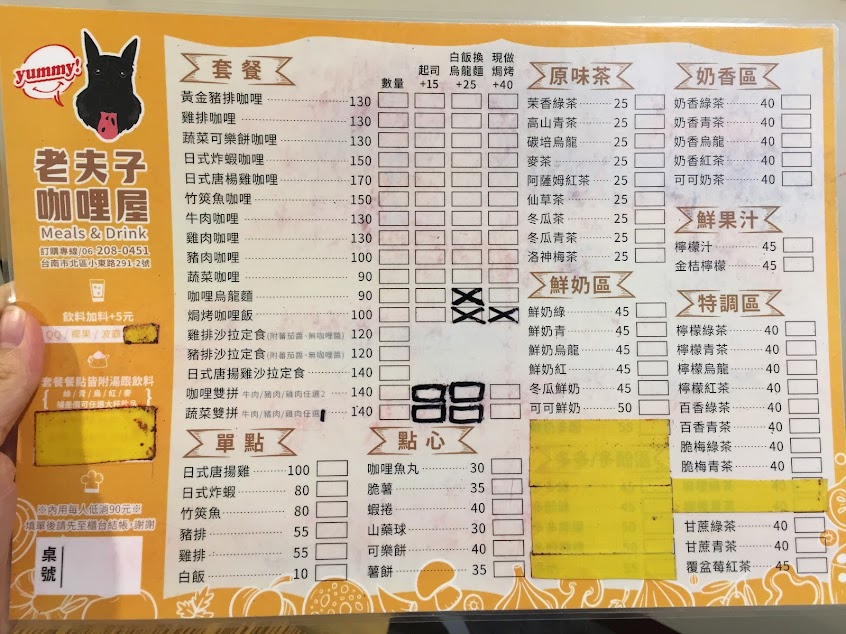 yummy!
老夫子
咖哩屋
Meals & Drink
訂購專線/06-208-0451
台南市北區小東路291-2號
飲料加料+5元
QQ / 椰果 / 波霸
套餐餐點皆附湯跟飲料
綠 / 青 / 烏 / 紅 / 麥
※內用每人低消90元※
填單後請先至櫃台結帳，謝謝
桌號
套餐
數量 起司+15 白飯換烏龍麵+25 現做焗烤+40
黃金豬排咖哩 130
雞排咖哩 130
蔬菜可樂餅咖哩 130
日式炸蝦咖哩 150
日式唐楊雞咖哩 170
竹筴魚咖哩 150
牛肉咖哩 130
雞肉咖哩 130
豬肉咖哩 100
蔬菜咖哩 90
咖哩烏龍麵 90
焗烤咖哩飯 100
雞排沙拉定食(附蕃茄醬、無咖哩醬) 120
豬排沙拉定食(附蕃茄醬、無咖哩醬) 120
日式唐揚雞沙拉定食 140
咖哩雙拼 牛肉/豬肉/雞肉任選2 140
蔬菜雙拼 牛肉/豬肉/雞肉任選1 140
單點
日式唐揚雞 100
日式炸蝦 80
竹筴魚 80
豬排 55
雞排 55
白飯 10
點心
咖哩魚丸 30
脆薯 35
蝦捲 40
山藥球 30
可樂餅 40
薯餅 35
原味茶
茉香綠茶 25
高山青茶 25
碳培烏龍 25
麥茶 25
阿薩姆紅茶 25
仙草茶 25
冬瓜茶 25
冬瓜青茶 25
洛神梅茶 25
鮮奶區
鮮奶綠 45
鮮奶青 45
鮮奶烏龍 45
鮮奶紅 45
冬瓜鮮奶 45
可可鮮奶 50
奶香區
奶香綠茶 40
奶香青茶 40
奶香烏龍 40
奶香紅茶 40
可可奶茶 40
鮮果汁
檸檬汁 45
金桔檸檬 45
特調區
檸檬綠茶 40
檸檬青茶 40
檸檬烏龍 40
檸檬紅茶 40
百香綠茶 40
百香青茶 40
脆梅綠茶 40
脆梅青茶 40
甘蔗綠茶 40
甘蔗青茶 40
覆盆莓紅茶 45